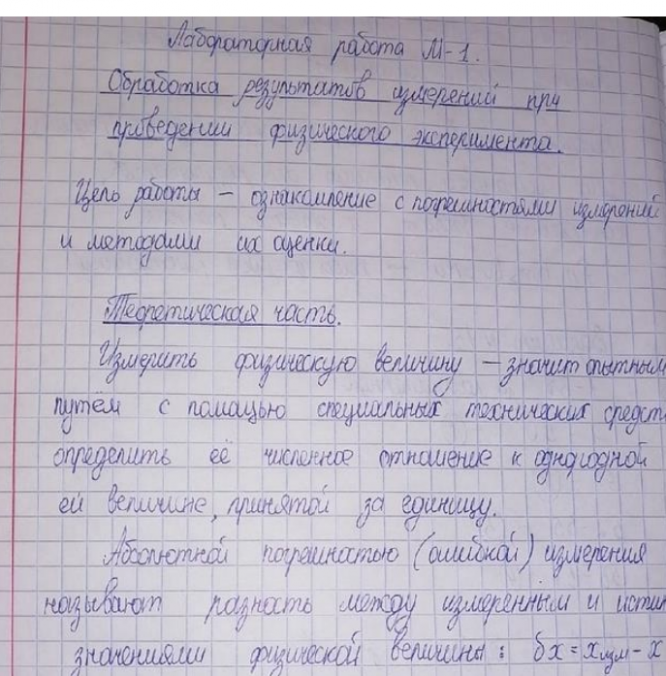 Лабораторная работа М-1.
Обработка результатов измерений при
проведении физического эксперимента.
Цель работы — ознакомление с погрешностями измерений
и методами их оценки.
Теоретическая часть.
Измерить физическую величину — значит опытным
путём с помощью специальных технических средст
определить её численное отношение к однородной
ей величине, принятой за единицу.
Абсолютной погрешностью (ошибкой) измерения
называют разность между измеренным и истин
значениями физической величины: δx = xизм - x